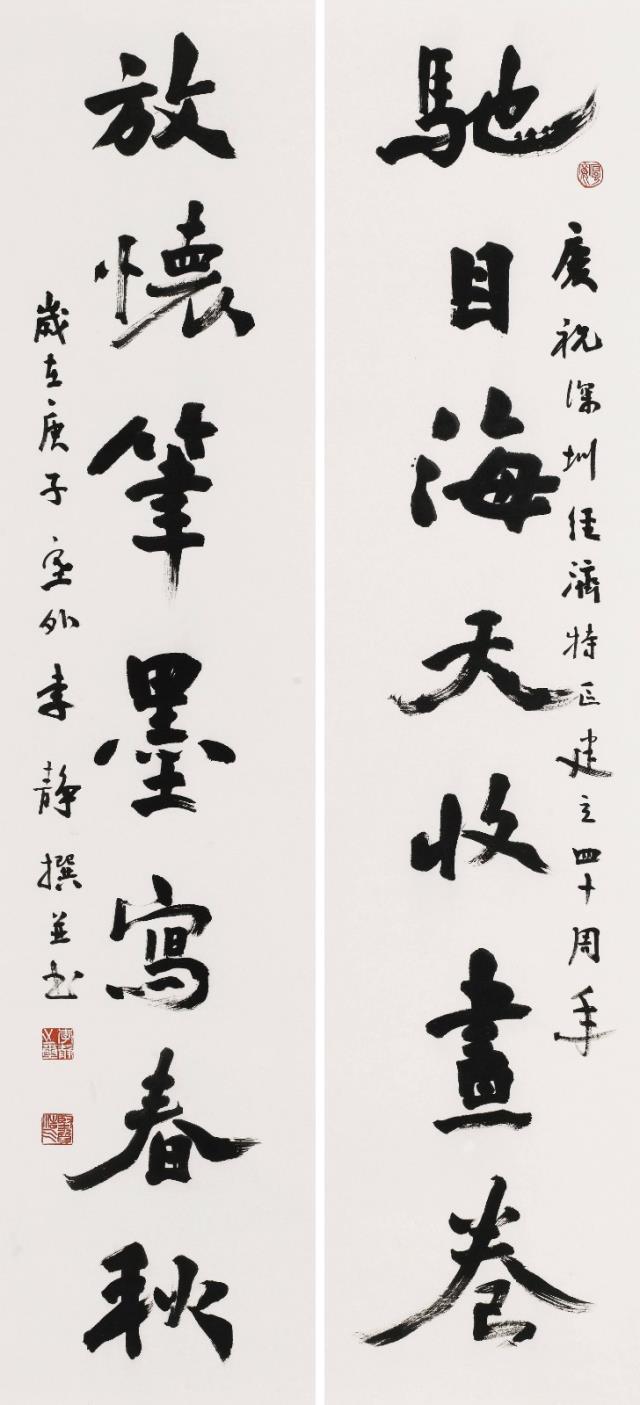 庆祝深圳经濟特区建立四十周年
馳目海天收畫卷
放懷筆墨寫春秋
歲在庚子塞外李静撰並书